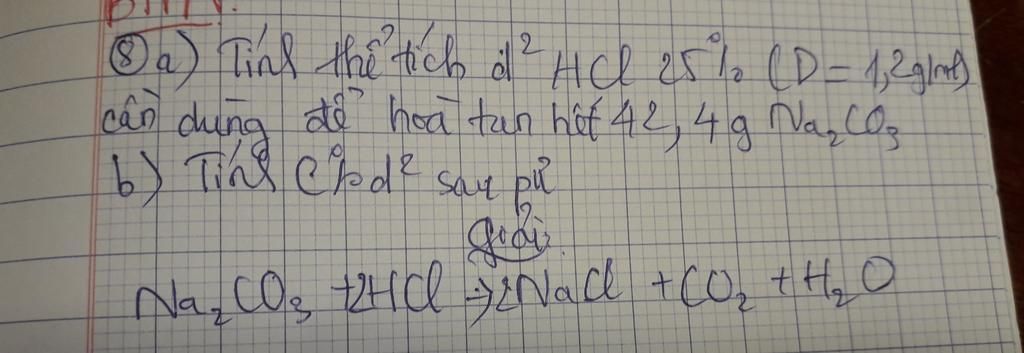 BTVN.
⑧ a) Tính thể tích d² HCl 25% (D = 1,2g/ml)
cần dùng để hoà tan hết 42,4g Na₂CO₃
b) Tính C% d² sau pứ
giải
Na₂CO₃ + 2HCl → 2NaCl + CO₂ + H₂O